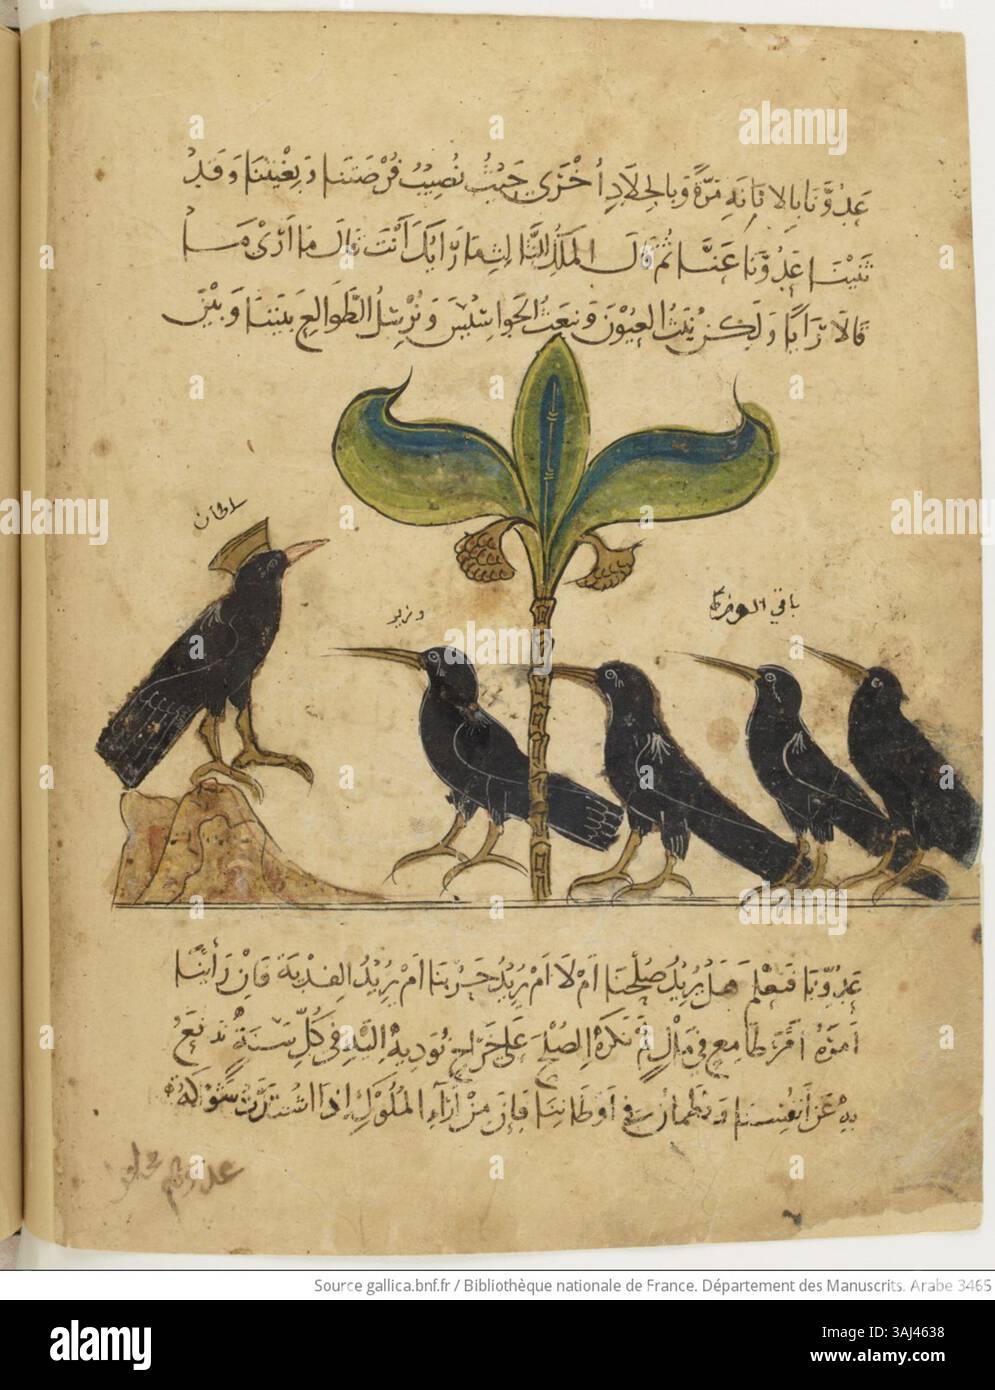 عَدُوَّنَا بِالاناةِ مَرَّةً وَبِالجِلَادِ أُخْرَى حَيْثُ نُصِيبُ فُرْصَتَنَا وَبِغْيَتَنَا وَقَدْ
ثَنَيْنَا عَدُوَّنَا عَنَّا ثُمَّ قَالَ المَلِكُ لِلثَّالِثِ مَا رَأيُكَ أَنْتَ قَالَ مَا أَرَىْ مَا
قَالَا رَأيًا وَلَكِنْ نَبُثُّ العُيُوْنَ وَنَبْعَثُ الجَوَاسِيْسَ وَنُرْسِلُ الطَّوَالِعَ بَيْنَنَا وَبَيْنَ
سلطان
وزير
باقي الوزرا
عَدُوِّنَا فَنَعْلَمَ هَلْ يُرِيْدُ صُلْحَنَا أَمْ لَا أَمْ يُرِيْدُ حَرْبَنَا أَمْ يُرِيْدُ الفِدْيَةَ فَإِنْ رَأَيْنَا
أَمْرَهُ أَمْرَ طَامِعٍ فِي مَالٍ لَمْ نَكْرَهْ الصُّلْحَ عَلَى خَرَاجٍ نُؤَدِّيْهِ إِلَيْهِ فِي كُلِّ سَنَةٍ نَدْفَعُ
بِهِ عَنْ أَنْفُسِنَا وَنَطْمَأِنَّ فِي أَوْطَانِنَا فَإِنَّ مِنْ آرَآءِ المُلُوْكِ إِذَا اشْتَدَّتْ شَوْكَةُ
عدوهم
Source gallica.bnf.fr / Bibliothèque nationale de France. Département des Manuscrits. Arabe 3465
alamy
Image ID: 2AJ4638
www.alamy.com